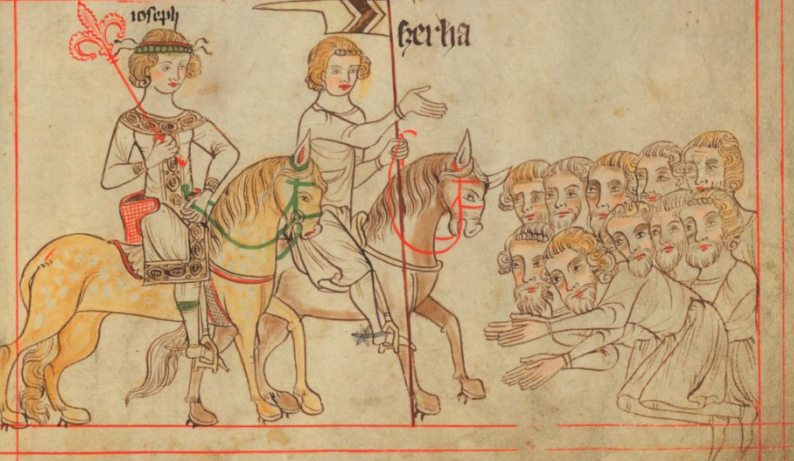 ioseph
herha